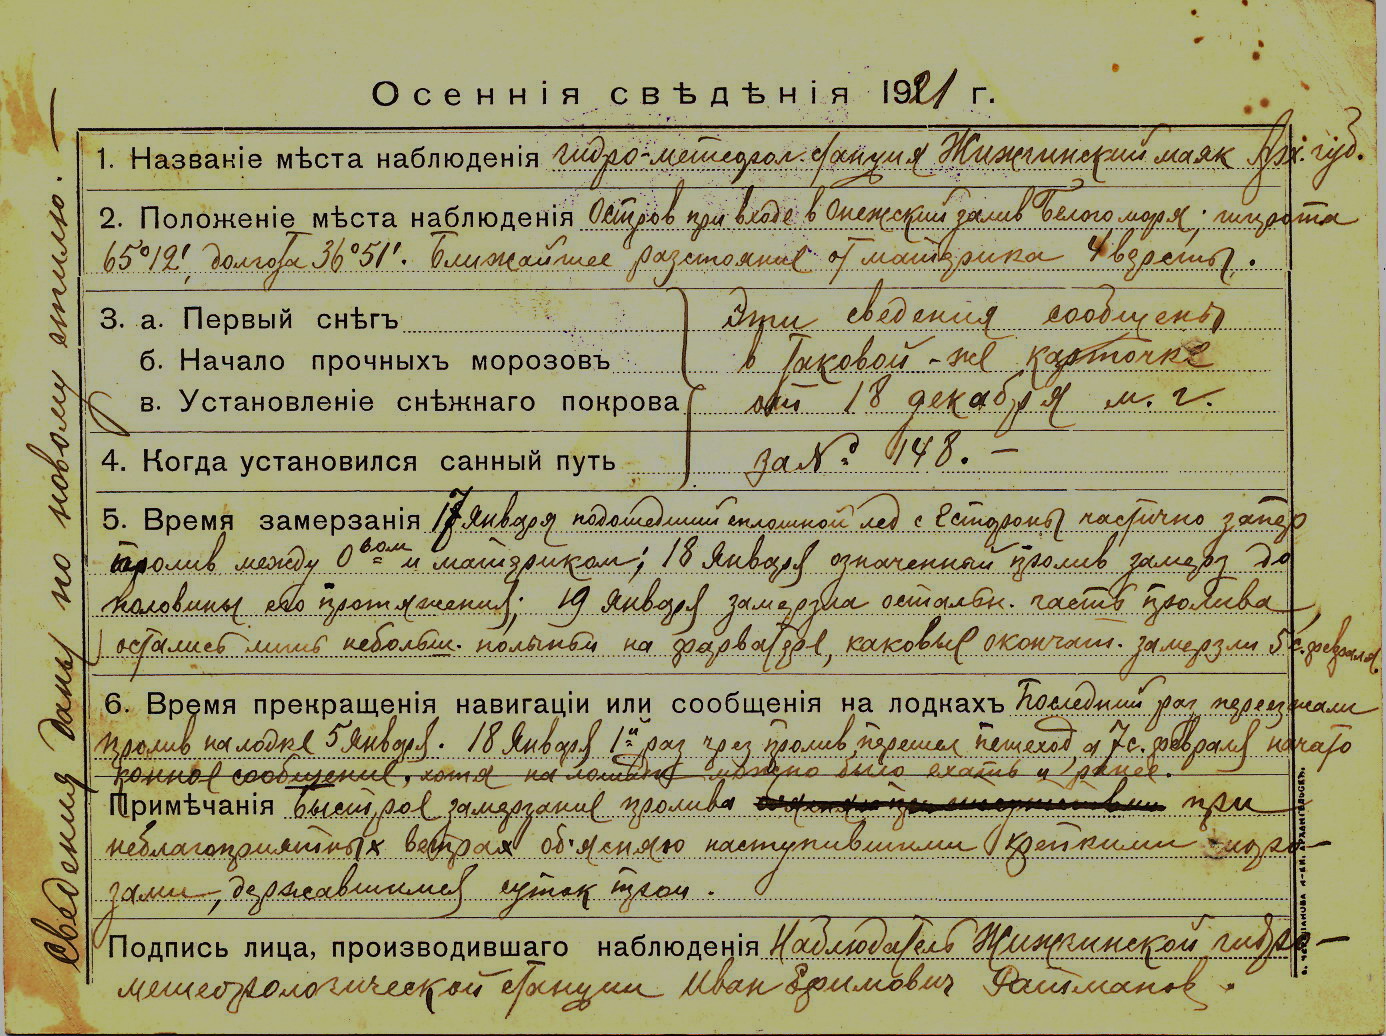 Осеннія свѣдѣнія 1921 г.
1. Названіе мѣста наблюденія гидро-метеорол. станция Жижгинский маяк Арх. губ.
2. Положеніе мѣста наблюденія Остров при входе в Онежский залив Белого моря; широта
65°12', долгота 36°51'. Ближайшее разстояние от материка 4 версты.
3. а. Первый снѣгъ Эти сведения сообщены
б. Начало прочныхъ морозовъ в таковой-же карточке
в. Установленіе снѣжнаго покрова от 18 декабря м. г.
4. Когда установился санный путь за № 148. —
5. Время замерзанія 17 Января подошедший сплошной лед с Е стороны частично запер
пролив между О-вом и материком; 18 Января означенный пролив замерз до
половины его протяжения; 19 Января замерзла остальн. часть пролива,
остались лишь небольш. полыньи на фарватере, каковые окончат. замерзли 5 с. февраля.
6. Время прекращенія навигаціи или сообщенія на лодкахъ Последний раз переезжали
пролив на лодке 5 Января. 18 Января 1й раз чрез пролив перешел пешеход а 7 с. февраля начато
конное сообщение, хотя на лошади можно было ехать и ранее.
Примѣчанія Быстрое замерзание пролива при
неблагоприятных ветрах об'ясняю наступившими крепкими моро-
зами, державшимися суток трои.
Подпись лица, производившаго наблюденія Наблюдатель Жижгинской гидро-
метеорологической станции Иван Ефимович Ратманов.
Сведения даны по новому стилю. —